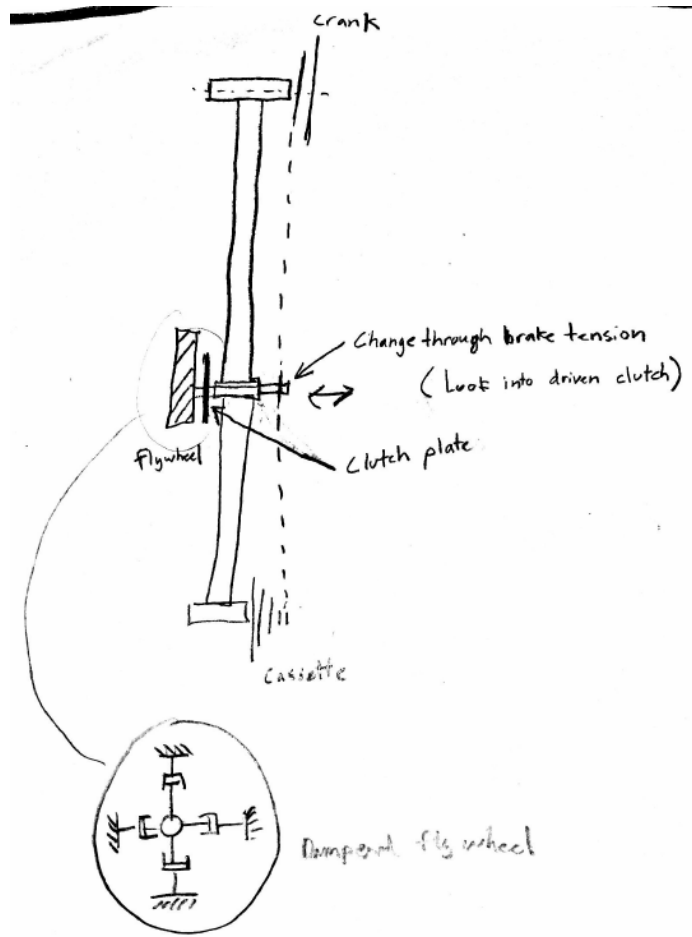 Crank
Change through brake tension
(Look into driven clutch)
flywheel
Clutch plate
Cassette
Dampend fly wheel